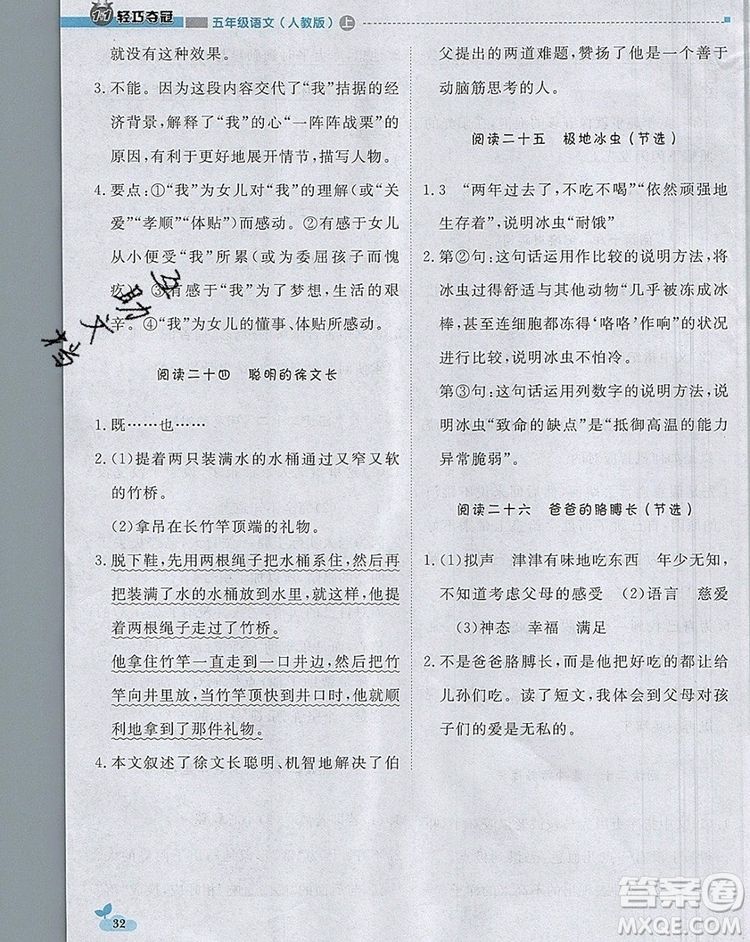 1+1 轻巧夺冠
五年级语文(人教版) 上
就没有这种效果。
3. 不能。因为这段内容交代了“我”拮据的经
济背景,解释了“我”的心“一阵阵战栗”的
原因,有利于更好地展开情节,描写人物。
4. 要点:①“我”为女儿对“我”的理解(或关
爱”“孝顺”“体贴”)而感动。②有感于女儿
从小便受“我”所累(或为委屈孩子而愧
疚)③有感于“我”为了梦想,生活的艰
辛。④“我”为女儿的懂事、体贴所感动。
阅读二十四 聪明的徐文长
1. 既……也……
2. (1)提着两只装满水的水桶通过又窄又软
的竹桥。
(2)拿吊在长竹竿顶端的礼物。
3. 脱下鞋,先用两根绳子把水桶系住,然后再
把装满了水的水桶放到水里,就这样,他提
着两根绳子走过了竹桥。
他拿住竹竿一直走到一口井边,然后将竹
竿向井里放,当竹竿顶快到井口时,他就顺
利地拿到了那件礼物。
4. 本文叙述了徐文长聪明、机智地解决了伯
父提出的两道难题,他是一个善于
动脑筋思考的人。
阅读二十五 极地冰虫(节选)
1. 3 “两年过去了,不吃不喝”“依然顽强地
生存着”,说明冰虫“耐饿”
2. 第②句:这句话运用作比较的说明方法,将
冰虫过得舒适与其他动物“几乎被冻成冰
棒,甚至连细胞都冻得‘咯咯’作响”的状况
进行比较,说明冰虫不怕冷。
第③句:这句话运用列数字的说明方法,说
明冰虫“致命的缺点”是“抵御高温的能力
异常脆弱”。
阅读二十六 爸爸的胳膊长(节选)
1. (1)拟声 津津有味地吃东西 年少无知,
不知道考虑父母的感受 (2)语言 慈爱
(3)神态 幸福 满足
2. 不是爸爸胳膊长,而是他把好吃的都让给
儿孙们吃。读了短文,我体会到父母对孩
子们的爱是无私的。
互助文档
32
答案圈
MXQE.COM